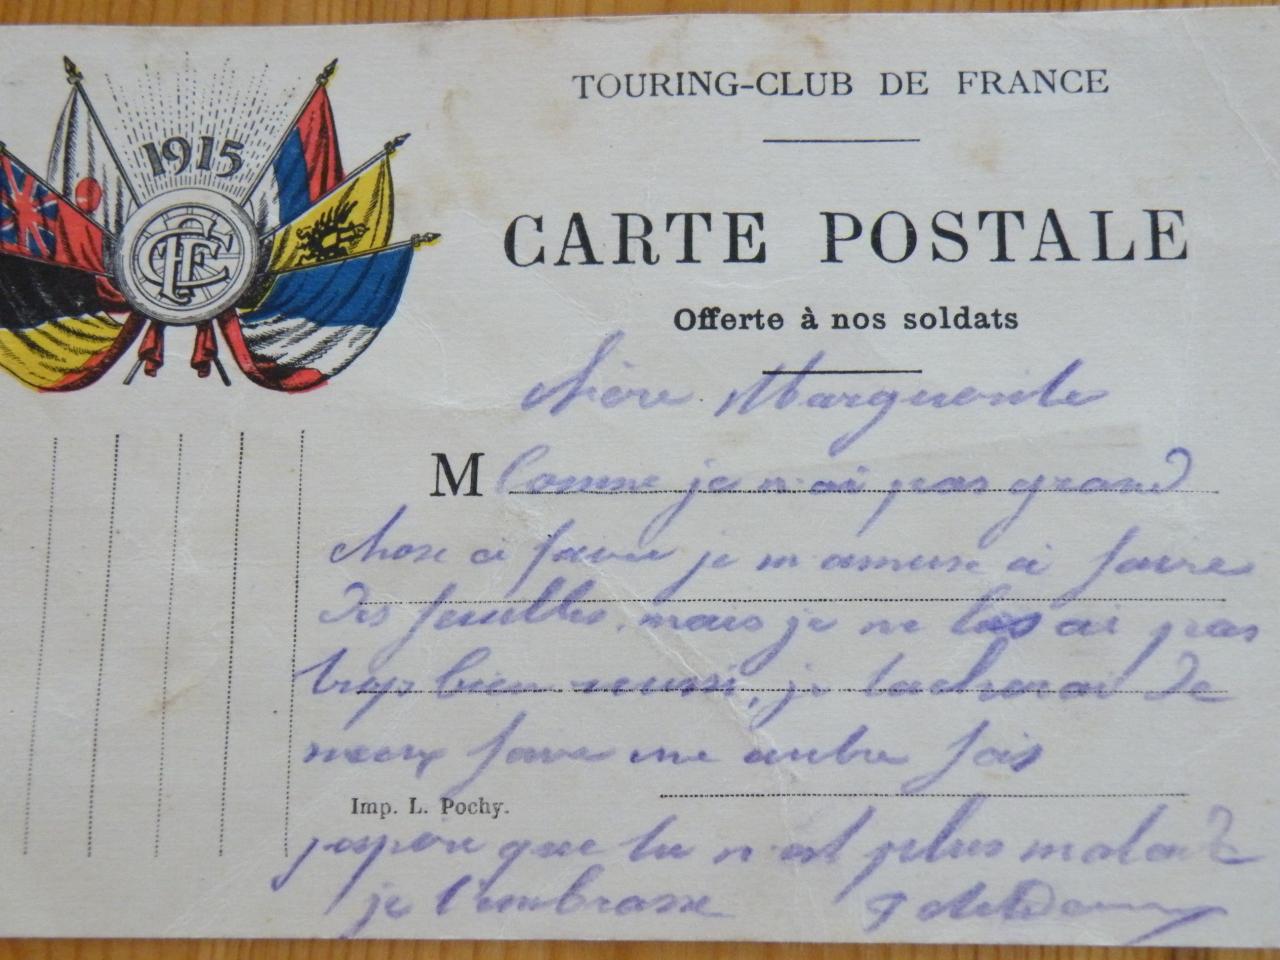 1915
TCF
TOURING-CLUB DE FRANCE
CARTE POSTALE
Offerte à nos soldats
Chère Marguerite
M Comme je n ai pas grand
chose a faire je m amuse a faire
des feuilles, mais je ne les ai pas
trop bien reussi, je tacherai de
mieux faire une autre fois
Imp. L. Pochy.
j espere que tu n est plus malade
je t embrasse